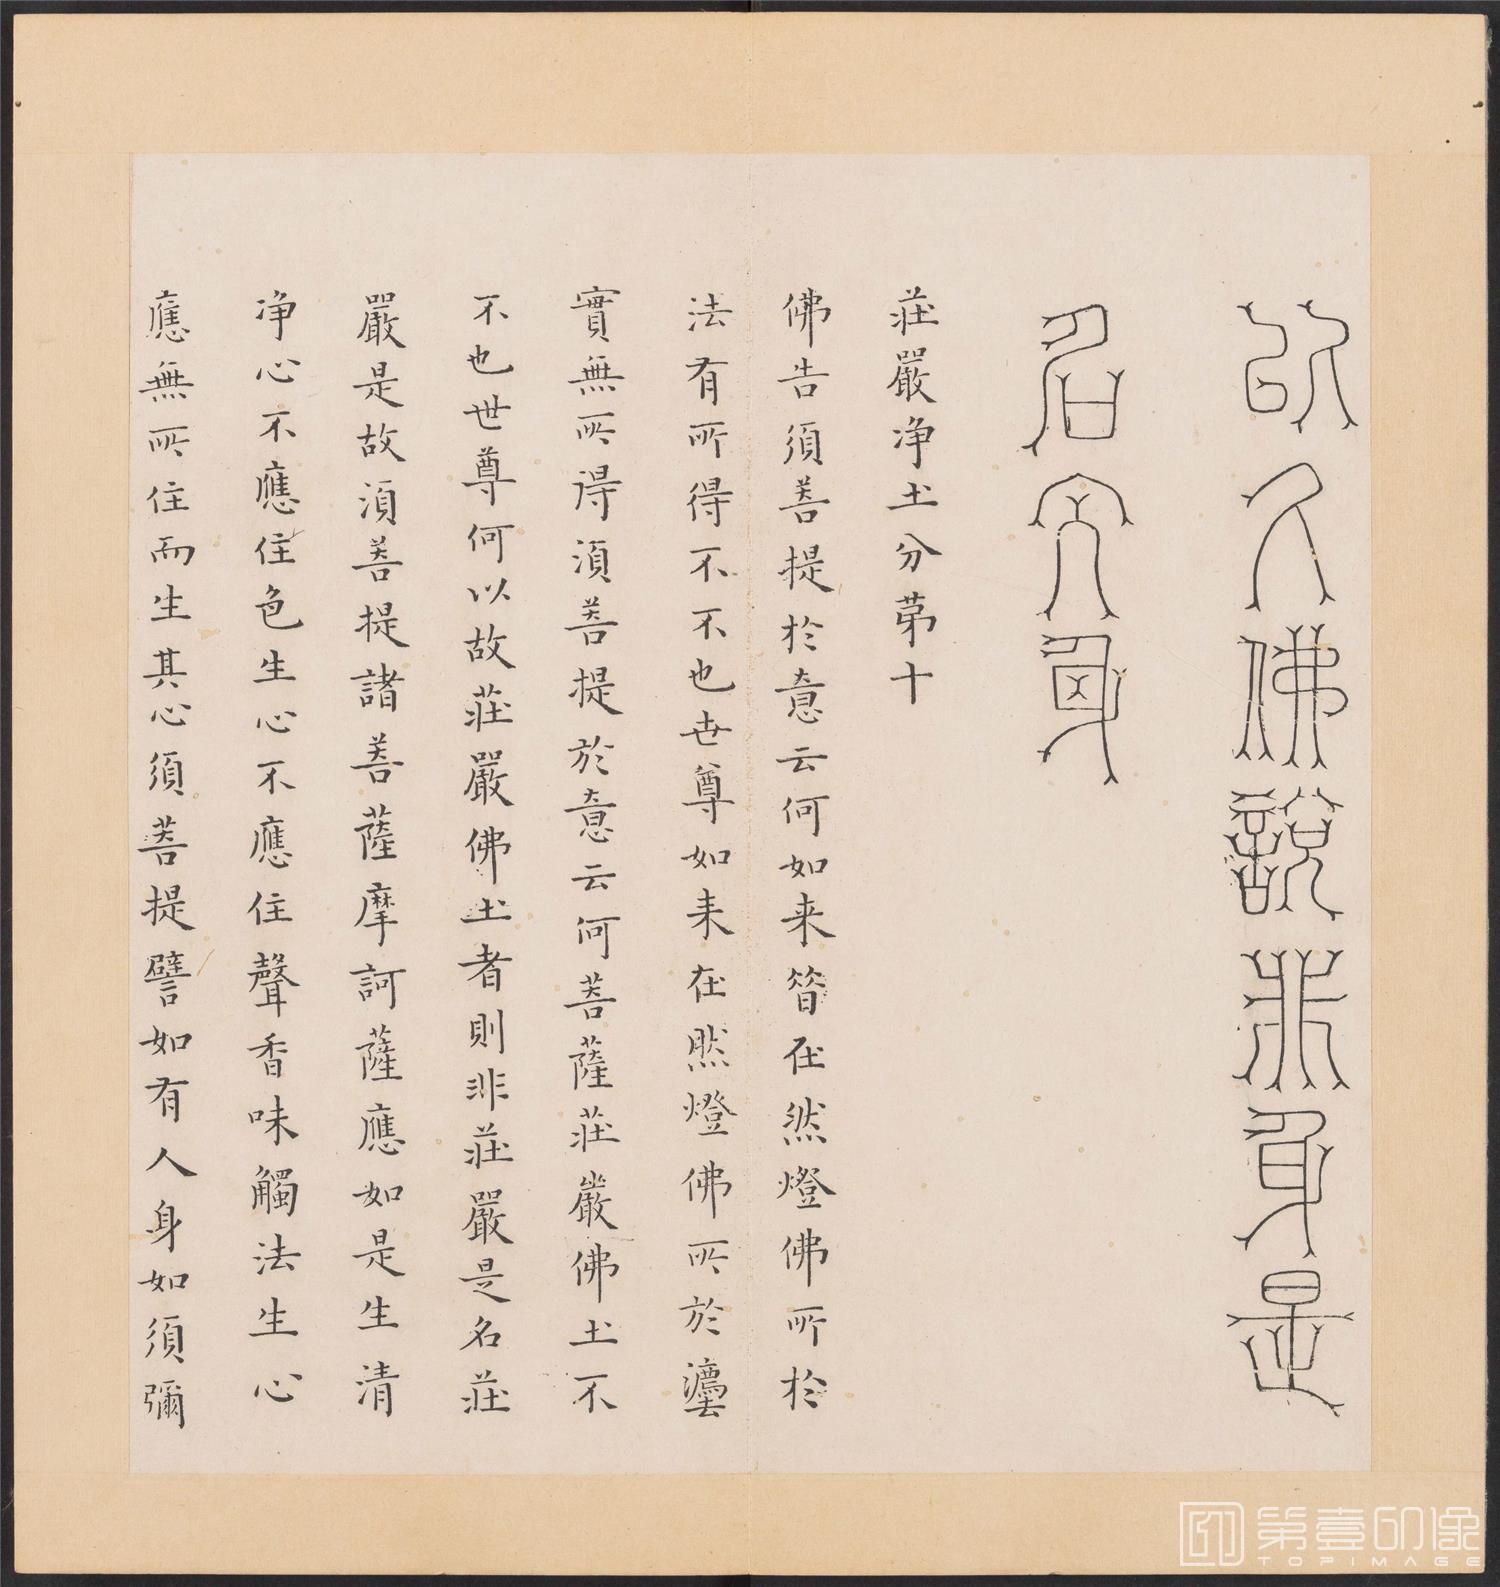 以故佛說非身是
名大身
莊嚴净土分第十
佛告須菩提於意云何如来昔在然燈佛所於
法有所得不不也世尊如来在然燈佛所於灋
實無所得須菩提於意云何菩薩莊嚴佛土不
不也世尊何以故莊嚴佛土者則非莊嚴是名莊
嚴是故須菩提諸菩薩摩訶薩應如是生清
净心不應住色生心不應住聲香味觸法生心
應無所住而生其心須菩提譬如有人身如須彌
第壹印像
TOPIMAGE